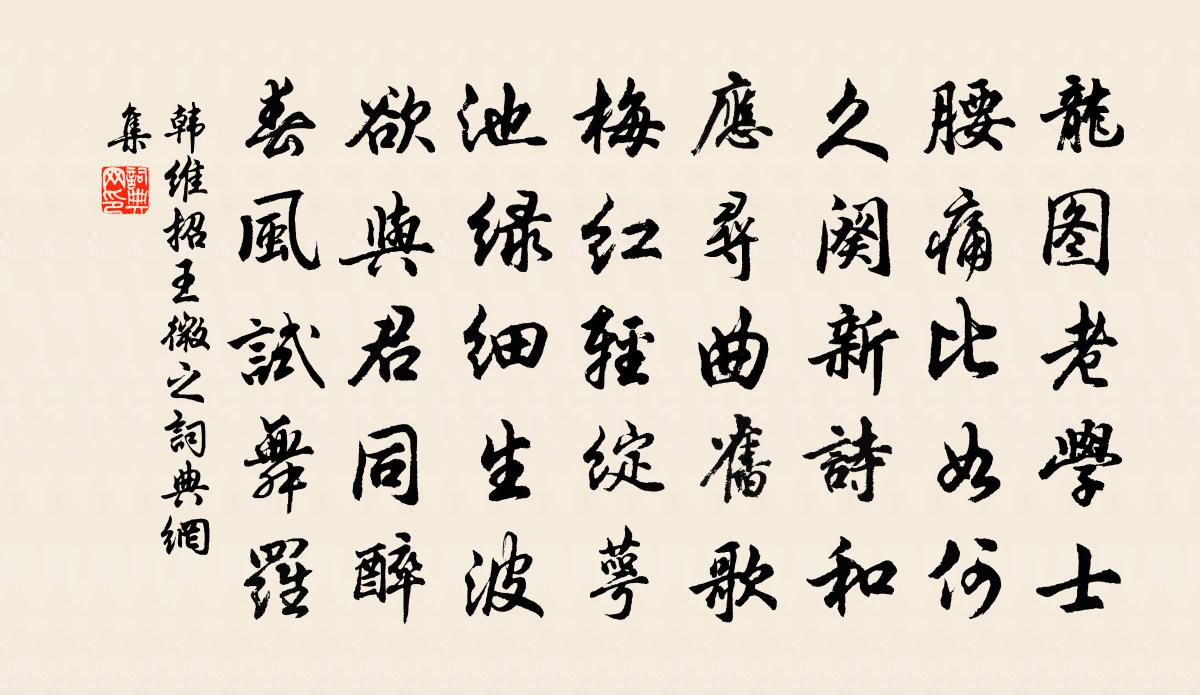 龍图老學士
腰痛比如何
久闋新詩和
應尋曲舊歌
梅紅輕綻萼
池緑细生波
欲與君同醉
春風試舞羅
韩维招王微之詞典網
集
詞典
网印